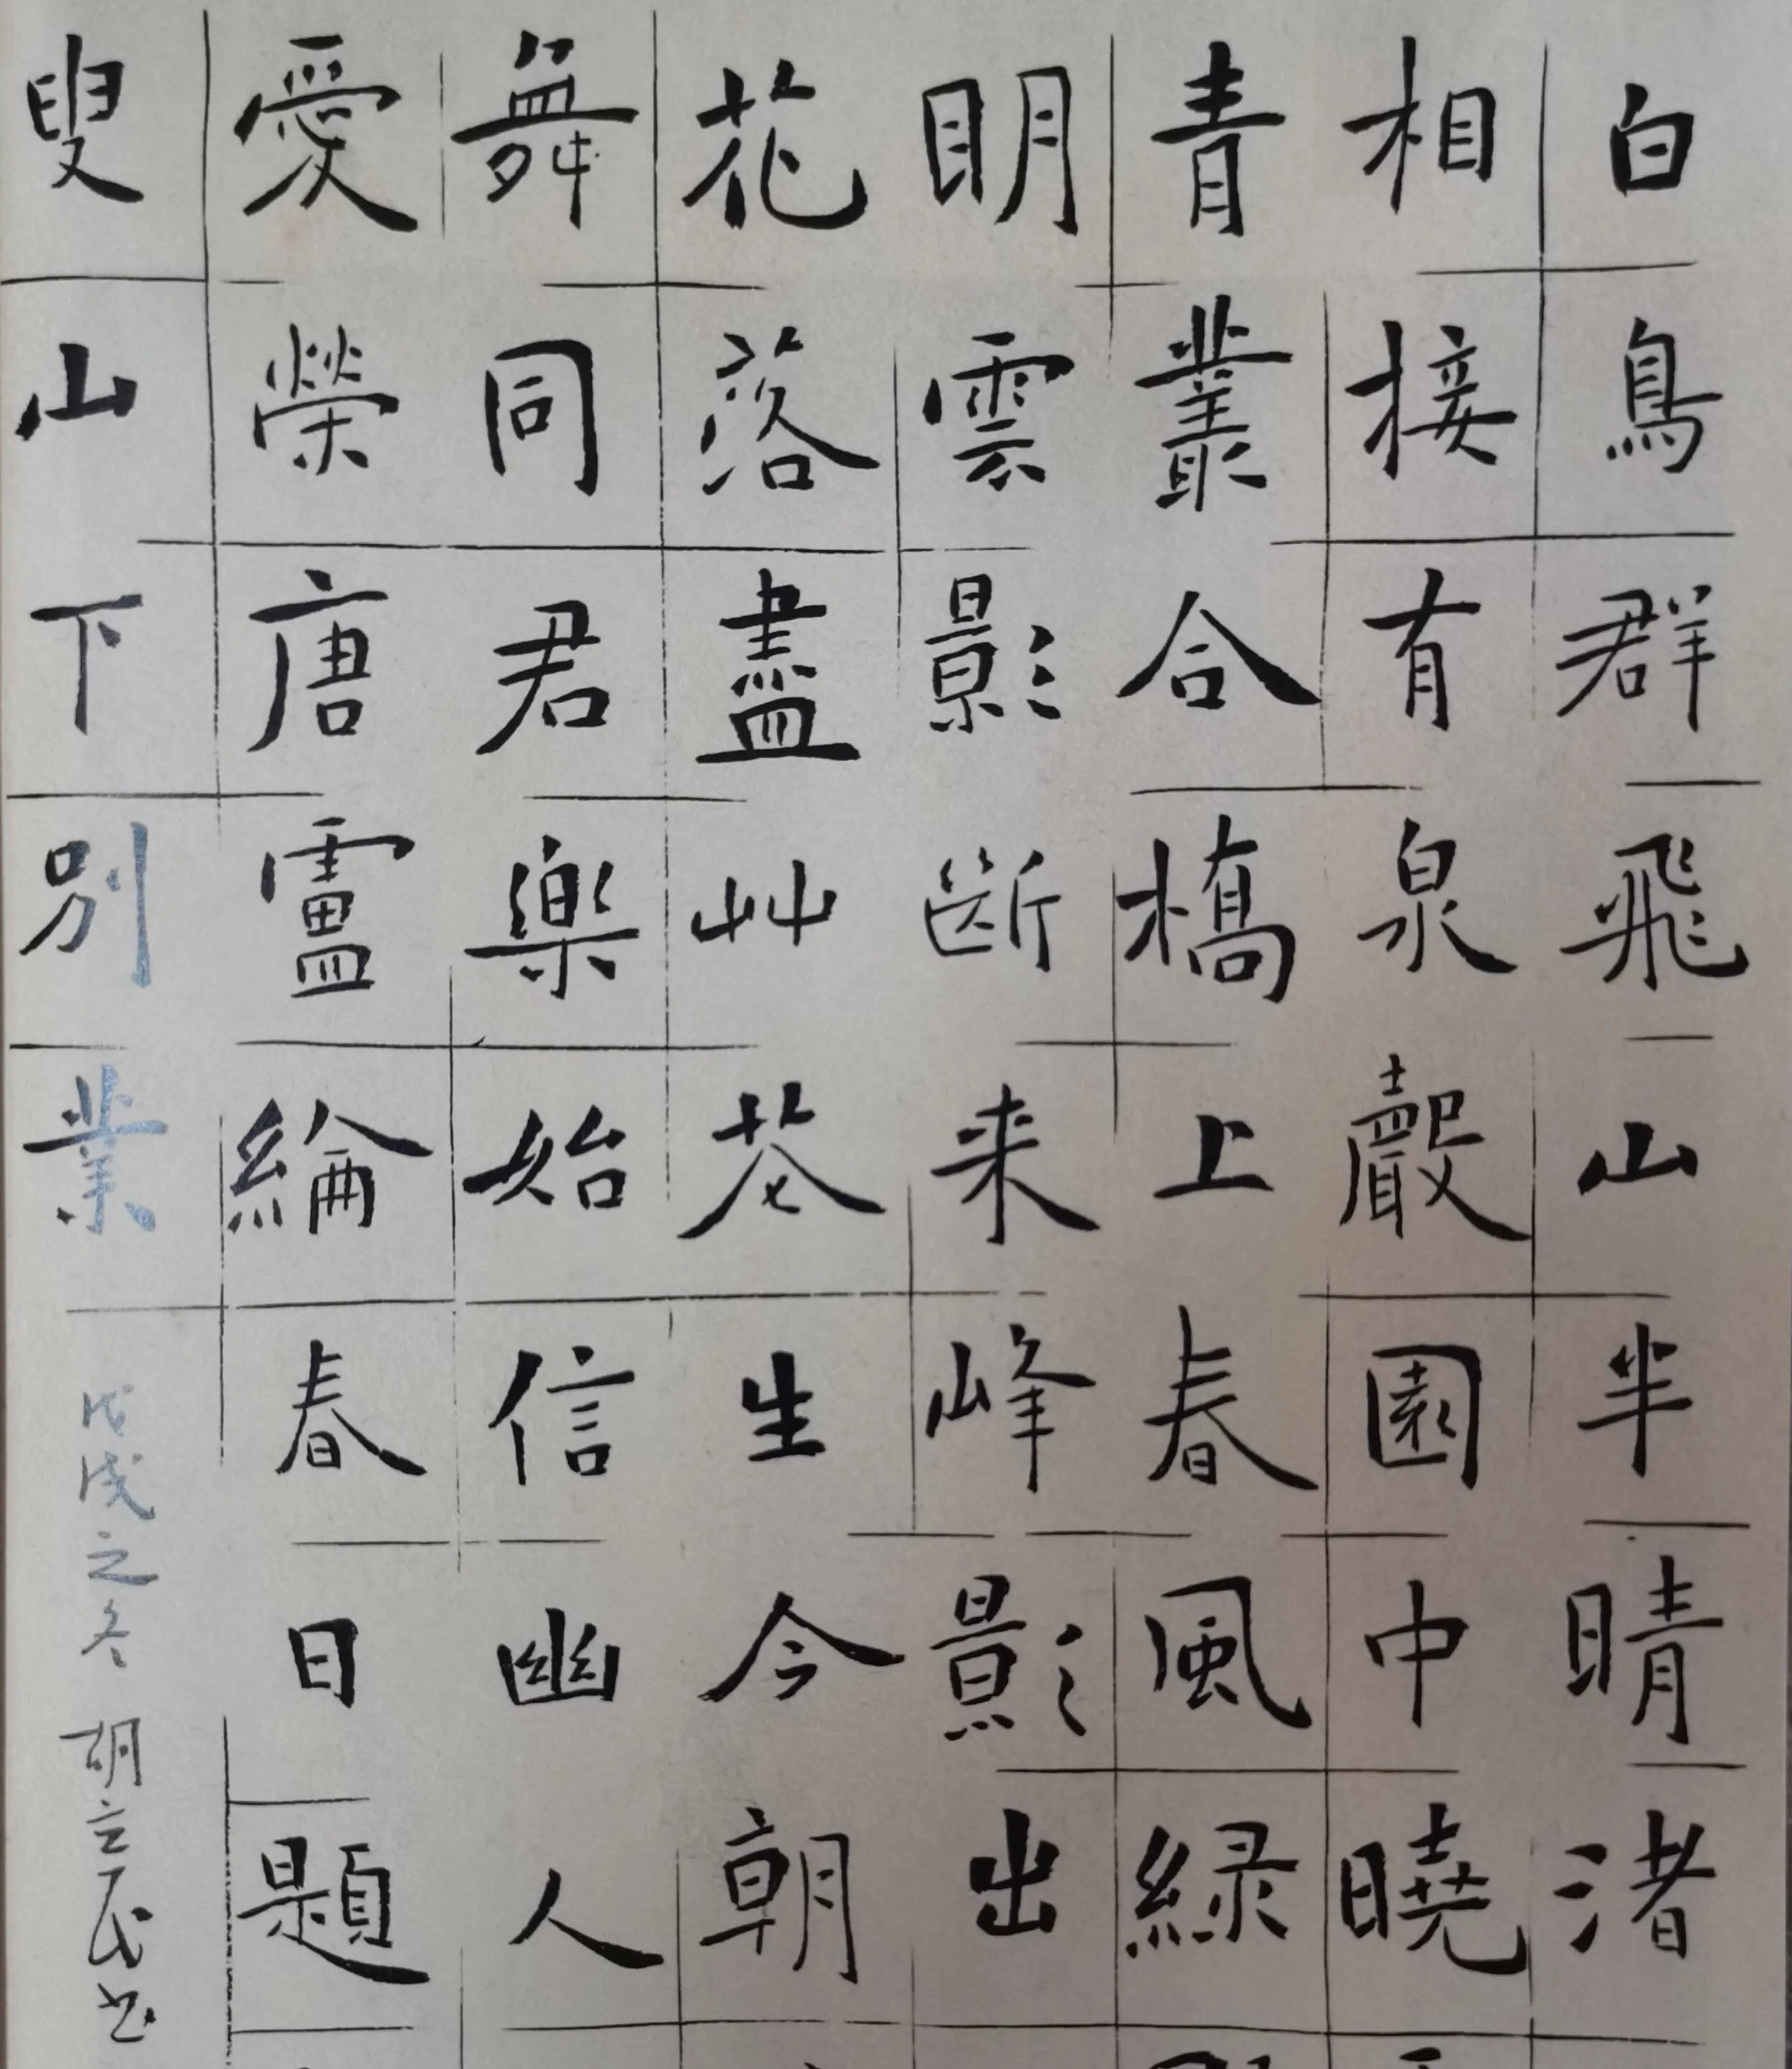 白鳥群飛山半晴渚
相接有泉聲園中曉
青叢合橋上春風緑
明雲影断来峰影出
花落盡艸芲生今朝
舞同君樂始信幽人
愛榮唐盧綸春日題
叟山下別業 戊戌之冬 胡立民书